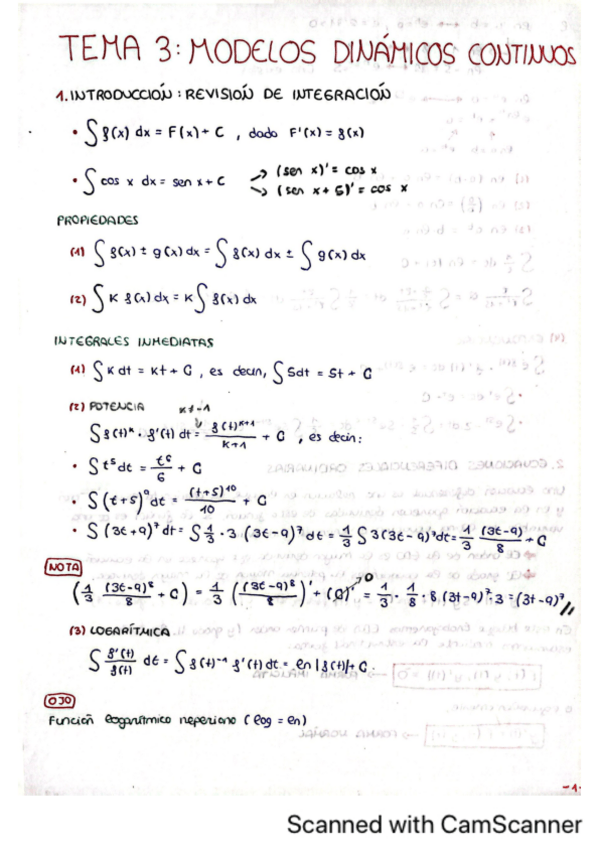 TEMA 3: MODELOS DINÁMICOS CONTINUOS
1. INTRODUCCIÓN: REVISIÓN DE INTEGRACIÓN
• ∫ f(x) dx = F(x) + C , dado F'(x) = f(x)
• ∫ cos x dx = sen x + C → (sen x)' = cos x
→ (sen x + 5)' = cos x
PROPIEDADES
(1) ∫ f(x) ± g(x) dx = ∫ f(x) dx ± ∫ g(x) dx
(2) ∫ K f(x) dx = K ∫ f(x) dx
INTEGRALES INMEDIATAS
(1) ∫ K dt = Kt + C , es decir, ∫ 5dt = 5t + C
(2) POTENCIA K≠-1
∫ f(t)^K · f'(t) dt = f(t)^(K+1) / (K+1) + C , es decir:
• ∫ t^5 dt = t^6/6 + C
• ∫ (t+5)^9 dt = (t+5)^10 / 10 + C
• ∫ (3t+9)^7 dt = ∫ 1/3 · 3 (3t-9)^7 dt = 1/3 ∫ 3(3t-9)^7 dt = 1/3 (3t-9)/8 + C
NOTA
(1/3 (3t-9)^8/8 + C) = 1/3 ((3t-9)^8/8)' + (C)' → 0 = 1/3 · 1/8 · 8 (3t-9)^7 3 = (3t-9)^7 //
(3) LOGARÍTMICA
∫ f'(t)/f(t) dt = ∫ f(t)^-1 f'(t) dt = ln |f(t)| + C .
OJO
Función logarítmico neperiano (log = ln)
-1-
Scanned with CamScanner